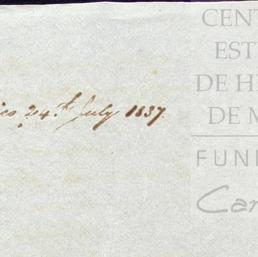 24th July 1837.
CENT
EST
DE H
DE M
FUN
Car